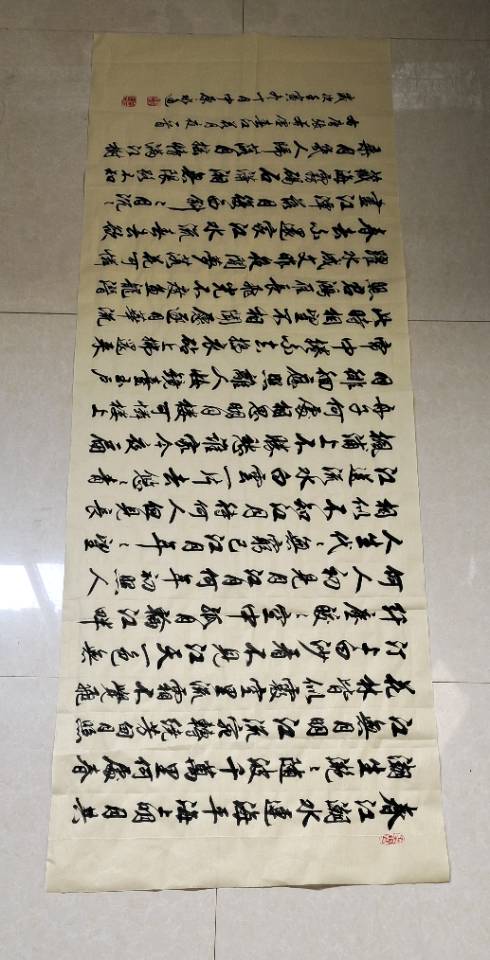 春江潮水連海平海上明月共
潮生灩〻隨波千萬里何處春
江無月明江流宛轉繞芳甸月照
花林皆似霰空里流霜不覺飛
汀上白沙看不見江天一色無
纖塵皎〻空中孤月輪江畔
何人初見月江月何年初照人
人生代〻無窮已江月年〻望
相似不知江月待何人但見長
江送流水白雲一片去悠〻青
楓浦上不勝愁誰家今夜扁
舟子何處相思明月樓可憐樓上
月徘徊應照離人妝鏡臺玉戶
帘中捲不去搗衣砧上拂還來
此時相望不相聞願逐月華流
照君鴻雁長飛光不度魚龍潛
躍水成文昨夜閒潭夢落花可憐
春去不還家江水流春去欲
盡江潭落月復西斜〻月沉〻
藏海霧碣石瀟湘無限路不知
乘月幾人歸落月搖情滿江樹
右唐張若虛春江花月夜一首
歲次壬寅十一月中原